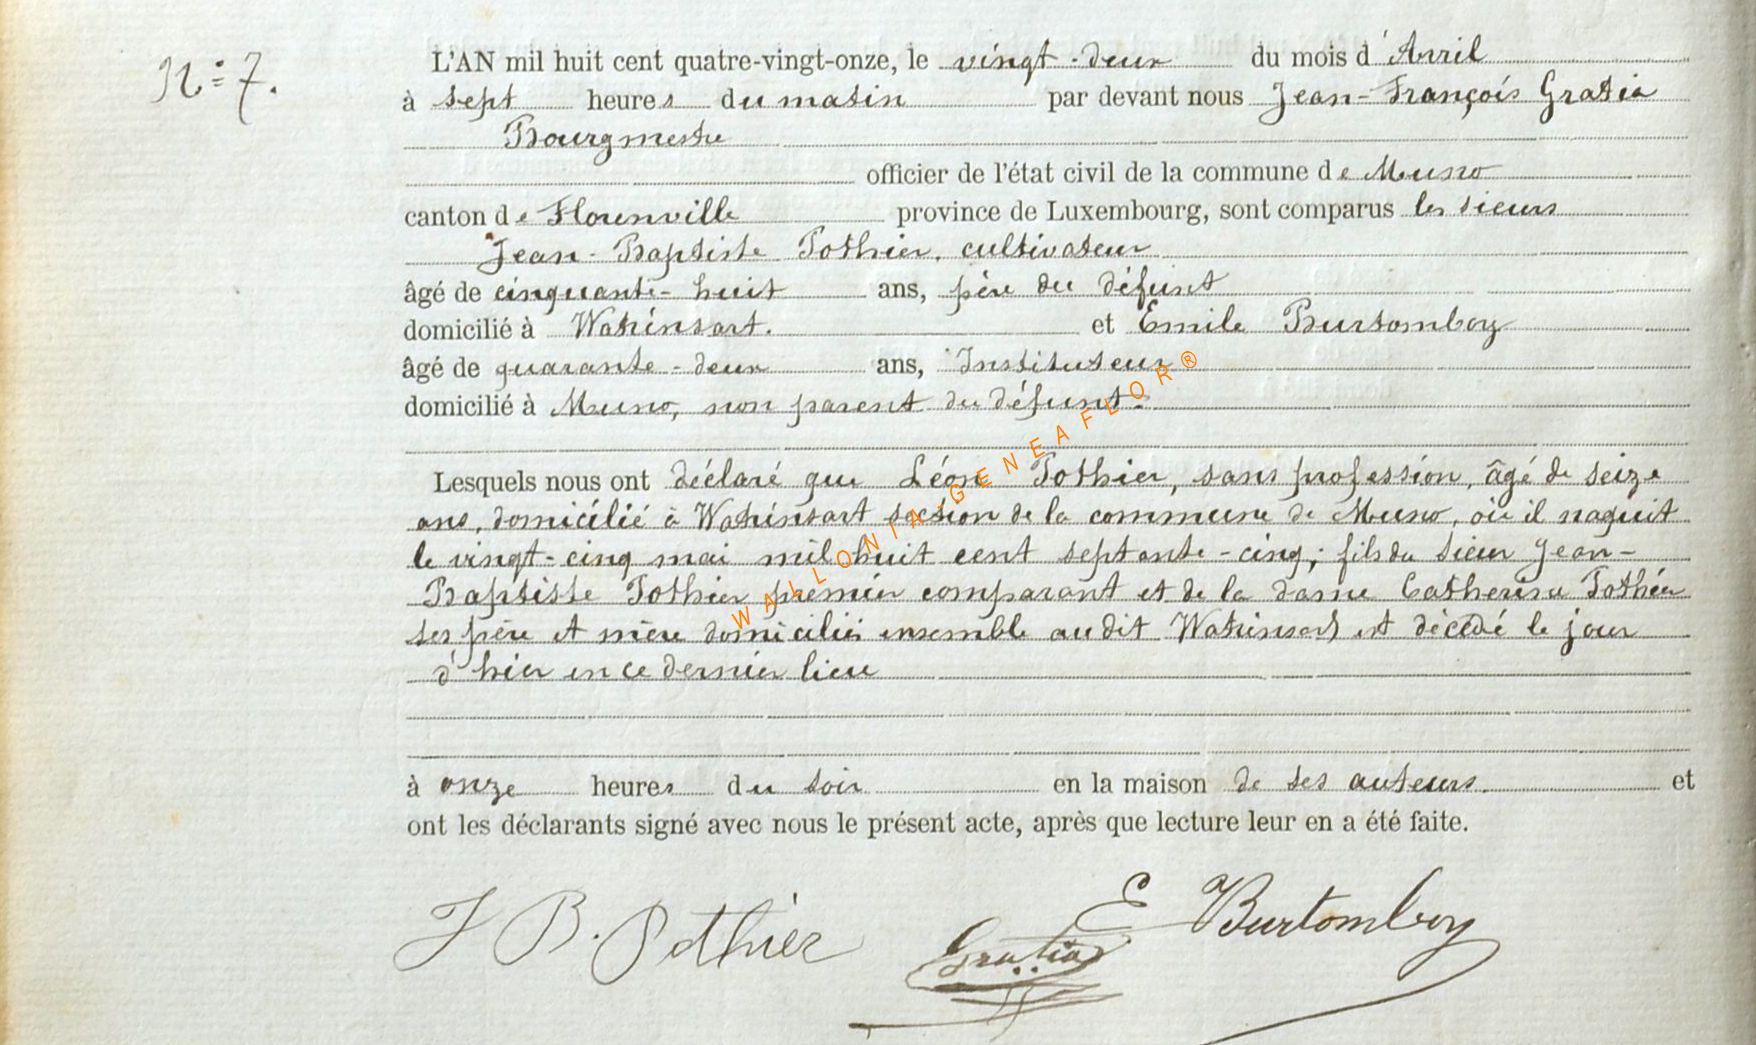 N° 7.
L'AN mil huit cent quatre-vingt-onze, le vingt-deux du mois d'Avril
à sept heures du matin par devant nous Jean-François Gratia
Bourgmestre
officier de l'état civil de la commune de Muno
canton de Florenville province de Luxembourg, sont comparus les sieurs
Jean-Baptiste Pothier, cultivateur
âgé de cinquante-huit ans, père du défunt
domicilié à Watrinsart. et Emile Burtomboy
âgé de quarante-deux ans, Instituteur
domicilié à Muno, non parent du défunt.
Lesquels nous ont déclaré que Léon Pothier, sans profession, âgé de seize
ans, domicilié à Watrinsart section de la commune de Muno, où il naquit
le vingt-cinq mai mil huit cent septante-cinq; fils du sieur Jean-
Baptiste Pothier premier comparant et de la dame Catherine Pothier
ses père et mère domiciliés ensemble audit Watrinsart est décédé le jour
d'hier en ce dernier lieu
à onze heures du soir en la maison de ses auteurs. et
ont les déclarants signé avec nous le présent acte, après que lecture leur en a été faite.
J B. Pothier Gratia E Burtomboy
WALLONIA-GENEAFLOR®